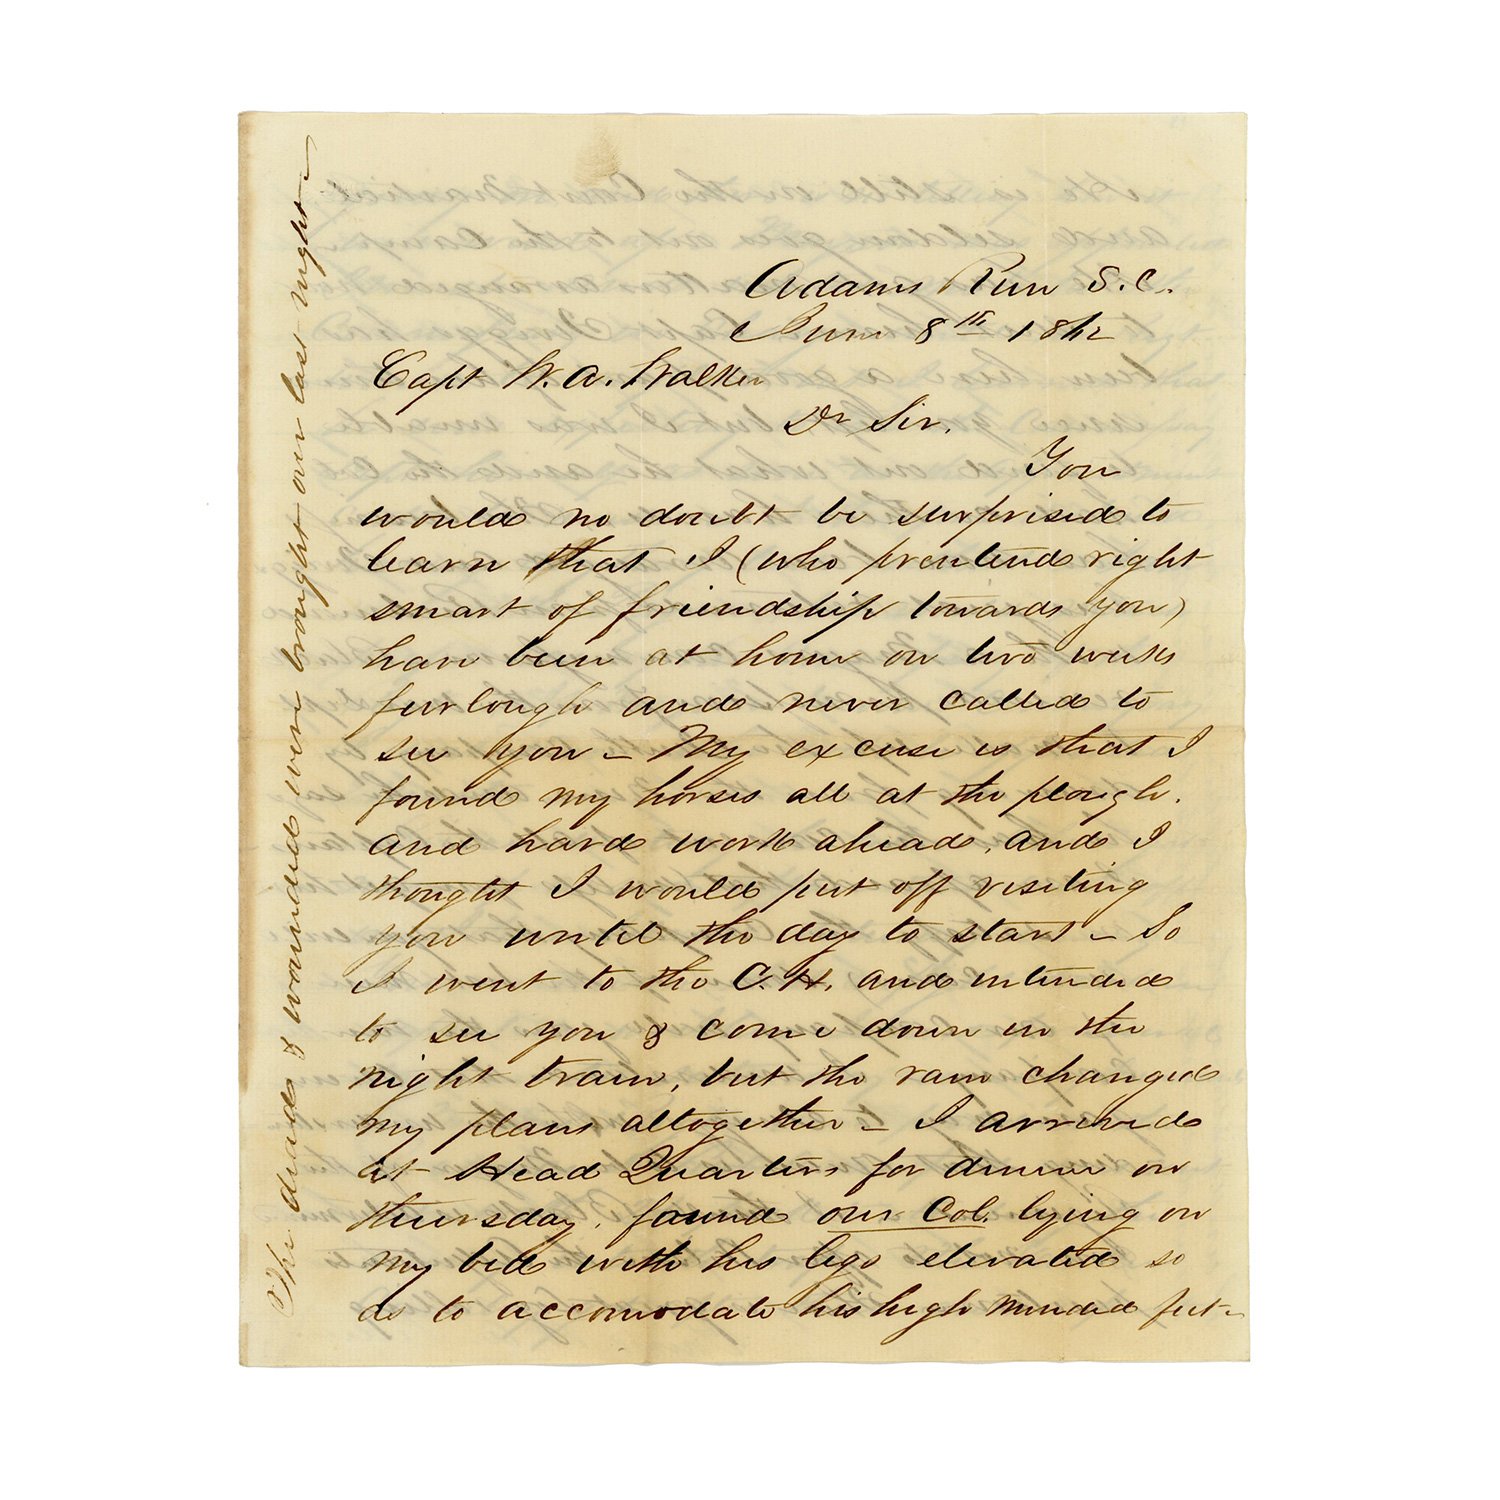 Adams Run S.C.
June 8th 1862
Capt W. A. Walker
Dr Sir.
You
would no doubt be surprised to
learn that I (who pretend right
smart of friendship towards you)
have been at home on two weeks
furlough and never called to
see you – My excuse is that I
found my horses all at the plough.
and hard work ahead, and I
thought I would put off visiting
you until the day to start – So
I went to the C. H. and intended
to see you & come down in the
night train, but the rain changed
my plans altogether – I arrived
at Head Quarters for dinner on
thursday. found our Col. lying on
my bed with his legs elevated so
as to accomodate his high minded feet –
The dead & wounded were brought over last night –